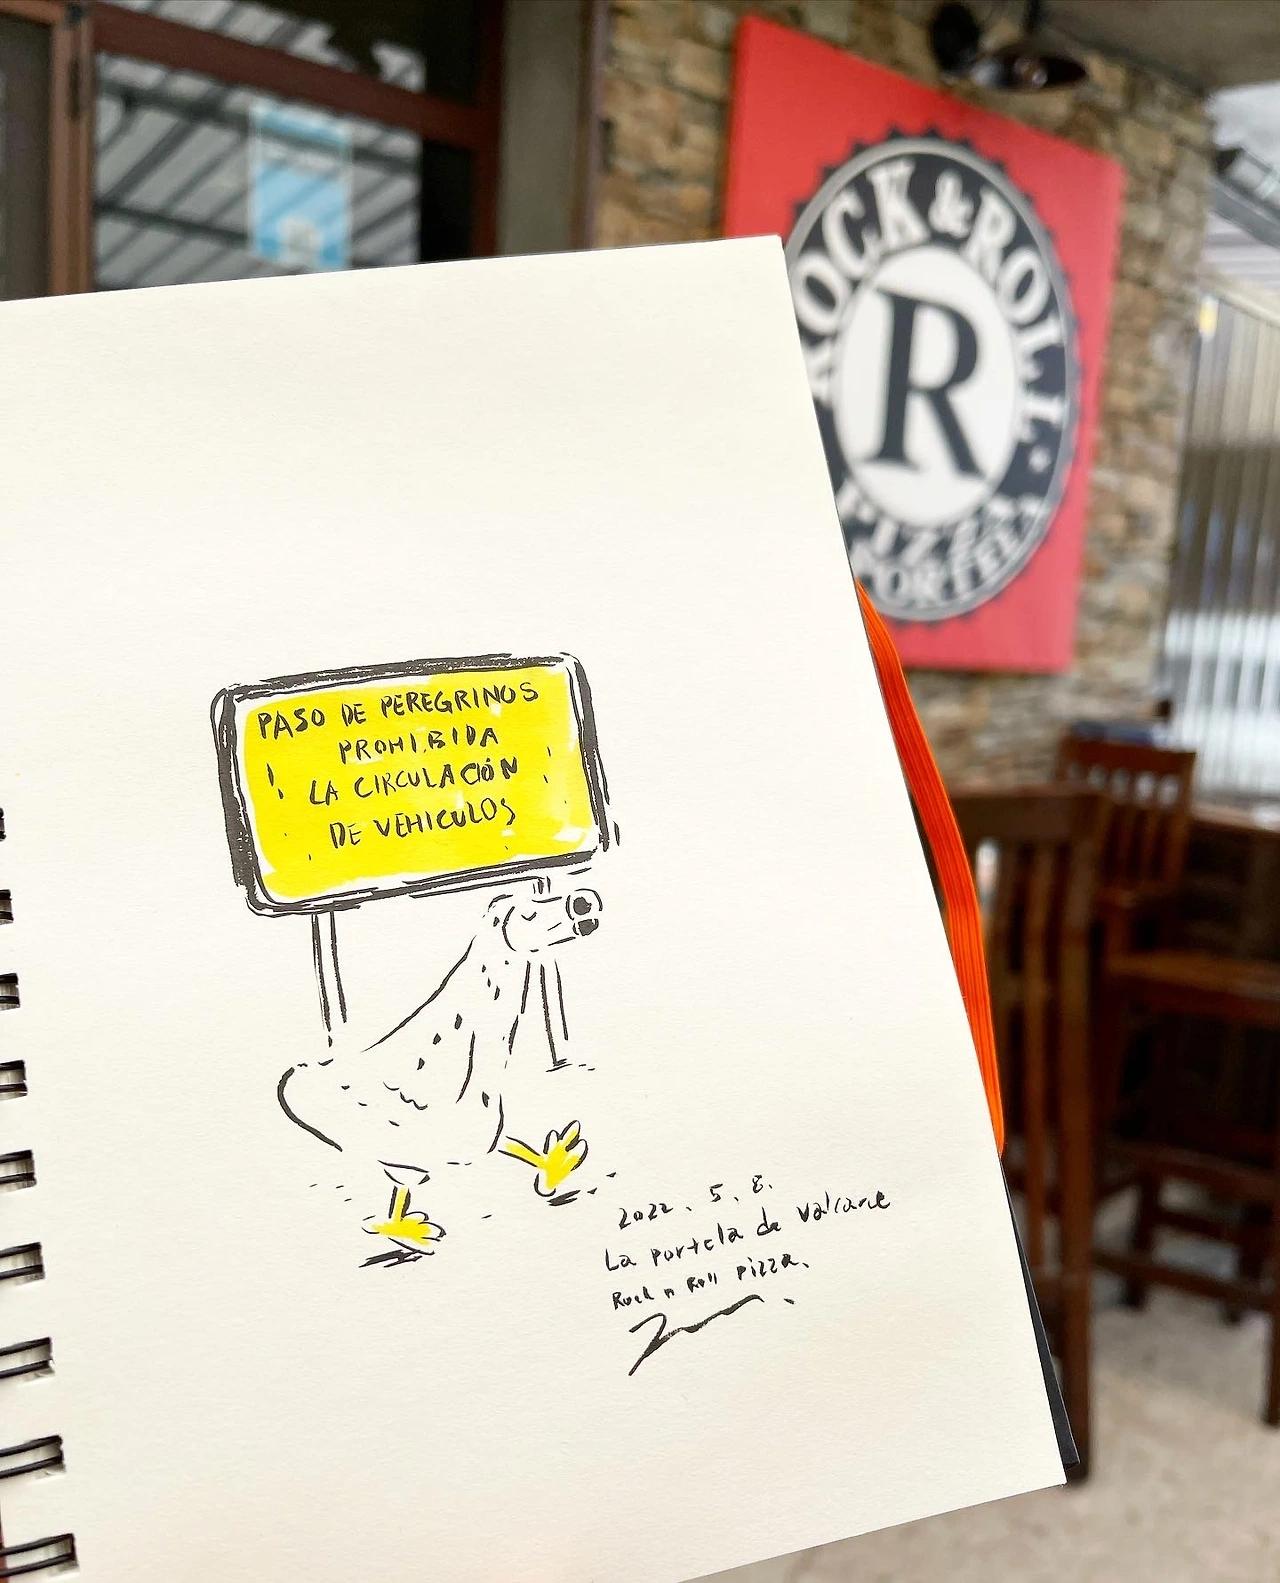 ROCK & ROLL
R
PIZZA
PORTELA
PASO DE PEREGRINOS
PROHIBIDA
LA CIRCULACIÓN
DE VEHICULOS
2022. 5. 8.
La portela de Valcarce
Rock n Roll pizza.